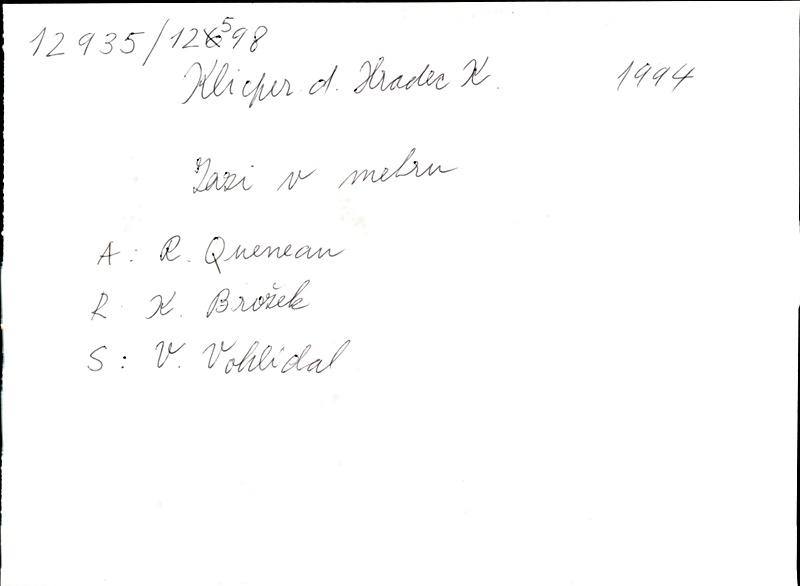 12935/12598
Klicper. d. Hradec K. 1994
Zazi v metru
A: R. Queneau
R K. Brožek
S: V. Vohlídal